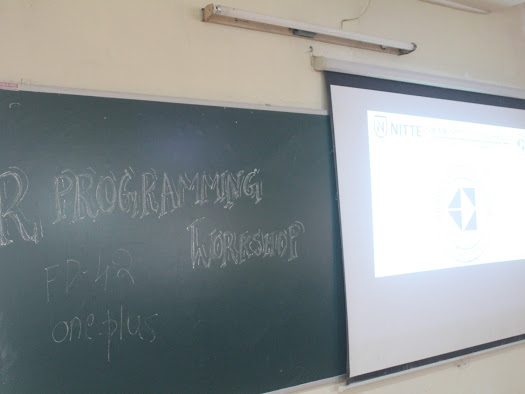 R PROGRAMMING
WORKSHOP
FD-42
one-plus
NITTE